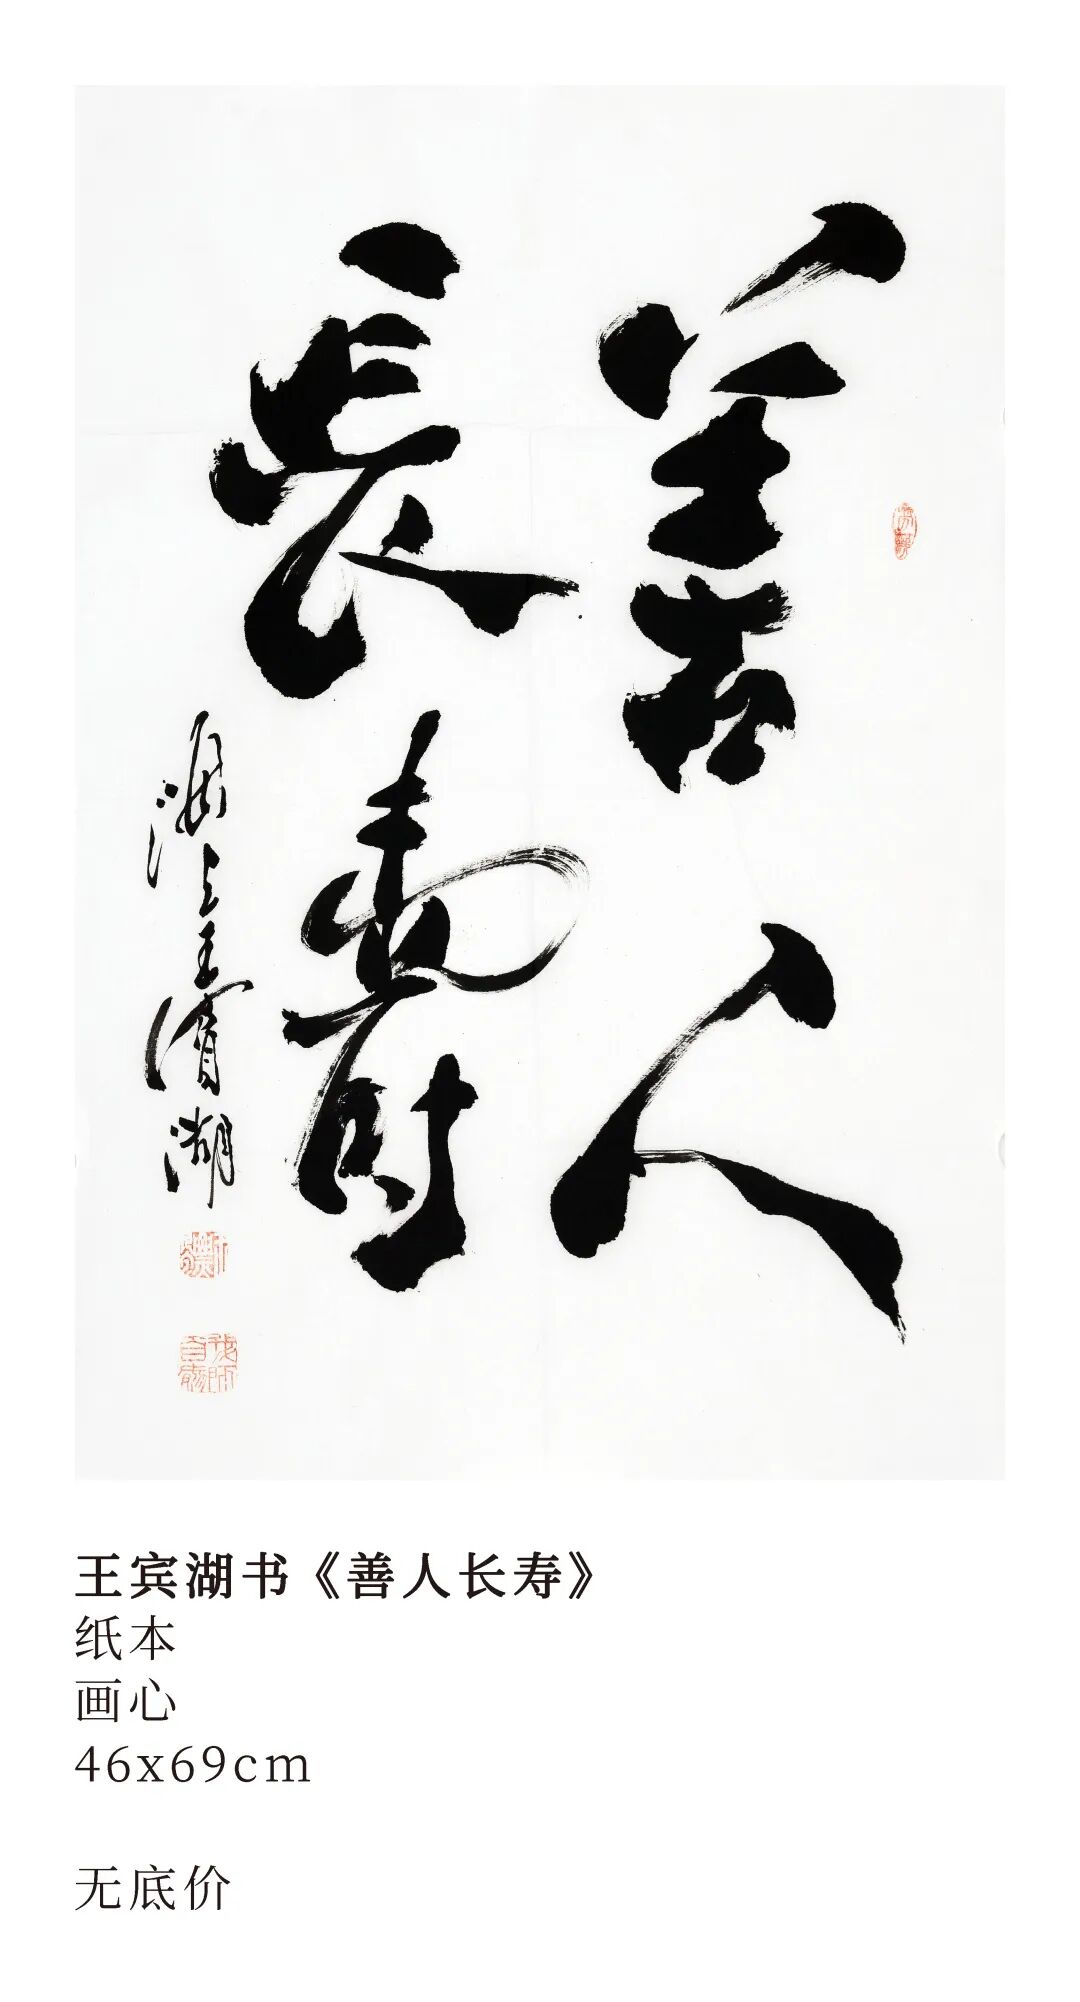 善人
長壽
濒上王賓湖
王宾湖书《善人长寿》
纸本
画心
46x69cm
无底价